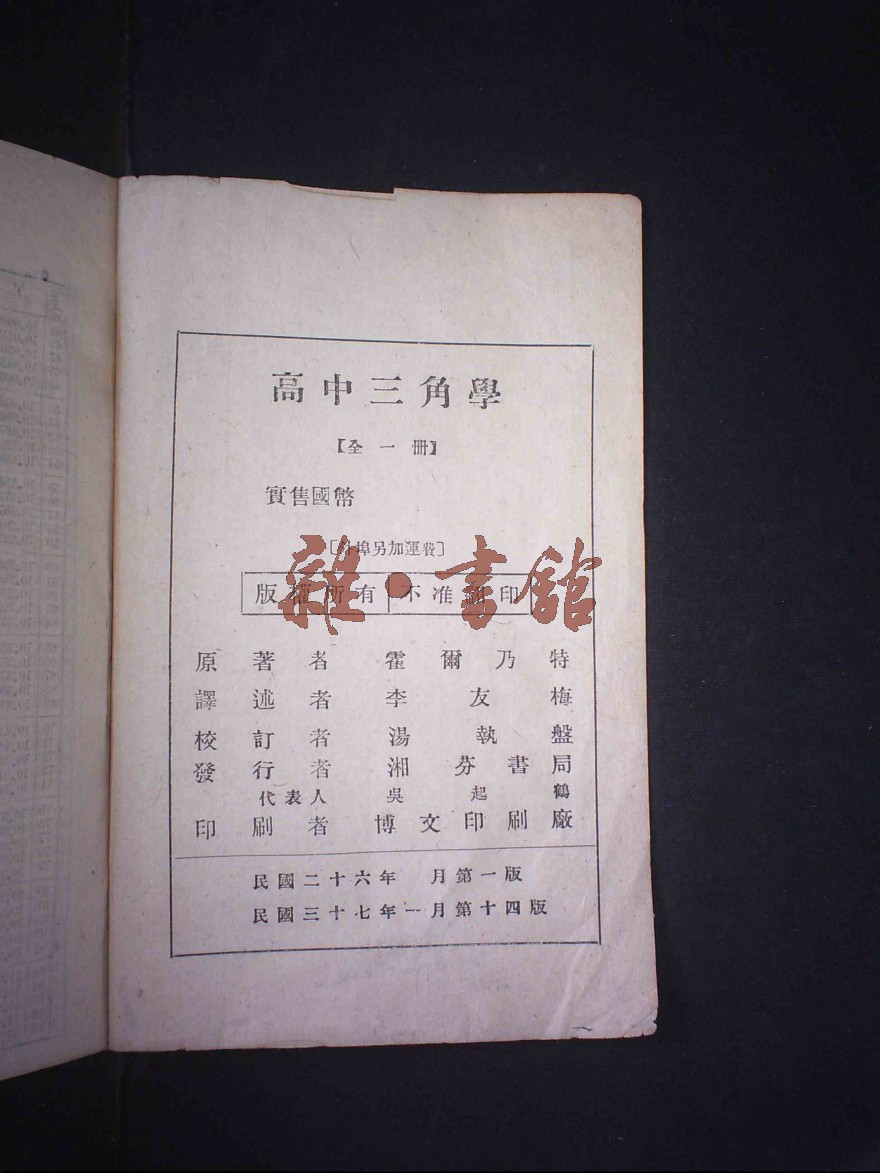 高中三角學
【全一冊】
實售國幣
［外埠另加運費］
版權所有 不准翻印
雜·書館
原著者 霍爾乃特
譯述者 李友梅
校訂者 湯執盤
發行者 湘芬書局
代表人 吳起鶴
印刷者 博文印刷廠
民國二十六年 月第一版
民國三十七年一月第十四版